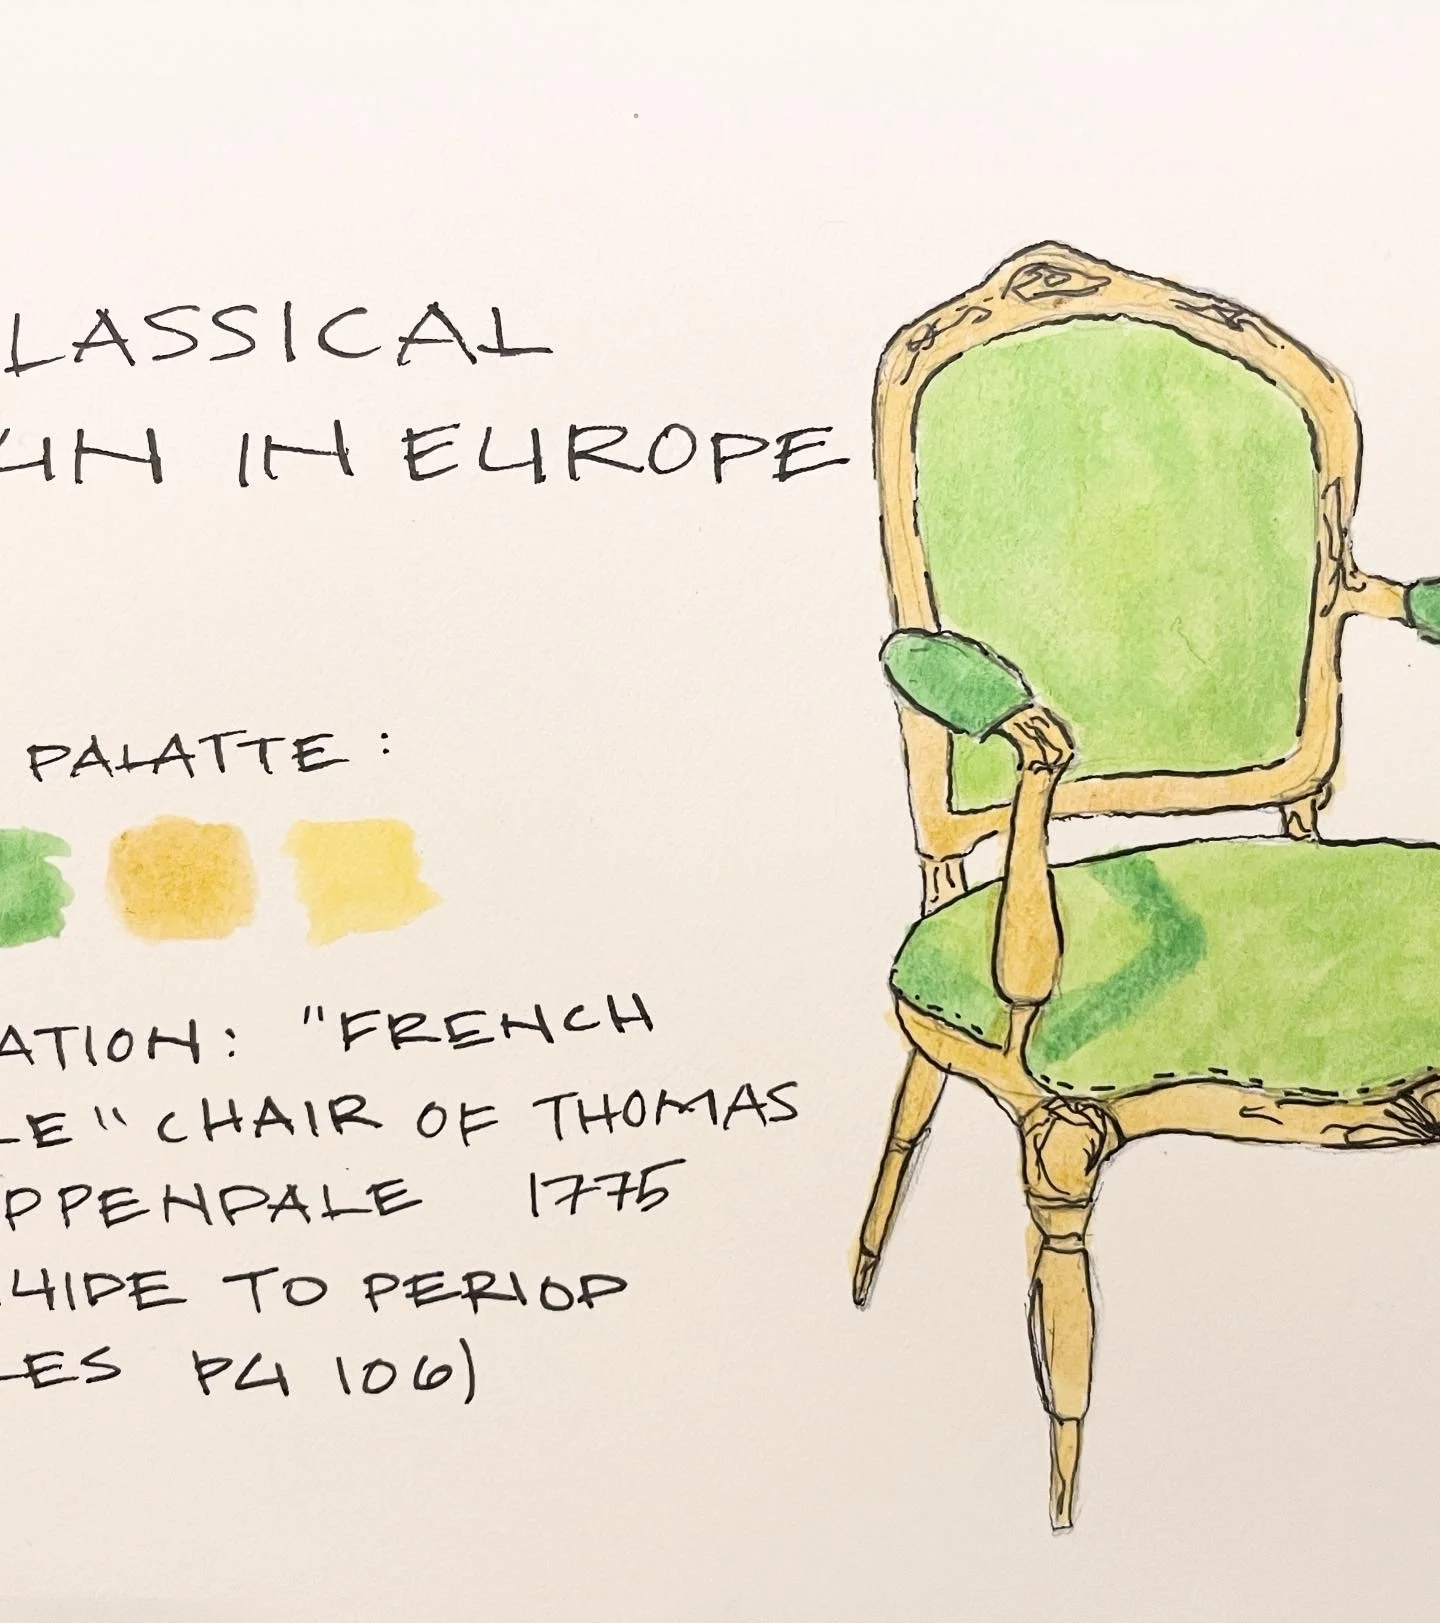 LASSICAL
IN EUROPE
PALATTE:
ATION: "FRENCH
LE" CHAIR OF THOMAS
PPENDALE 1775
UIDE TO PERIOD
LES PG 106)